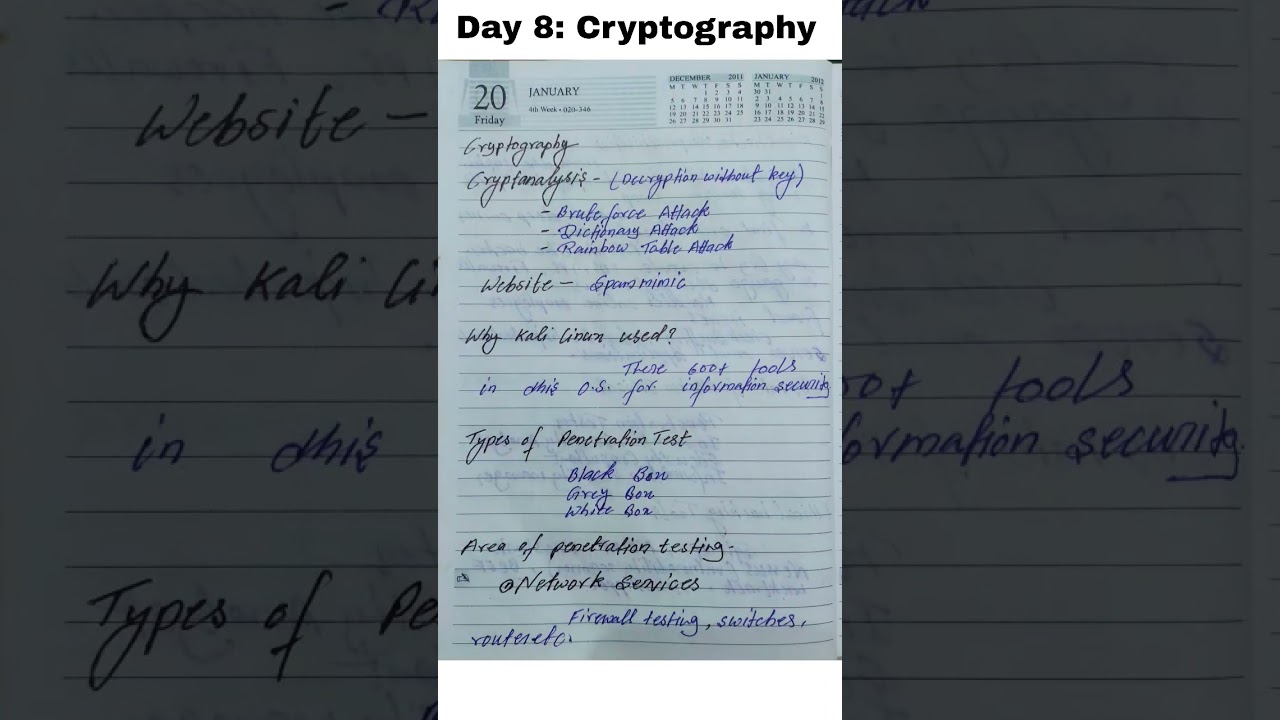 Day 8: Cryptography
20
Friday
JANUARY
4th Week • 020-346
DECEMBER 2011
M T W T F S S
1 2 3 4
5 6 7 8 9 10 11
12 13 14 15 16 17 18
19 20 21 22 23 24 25
26 27 28 29 30 31
JANUARY 2012
M T W T F S S
30 31 1
2 3 4 5 6 7 8
9 10 11 12 13 14 15
16 17 18 19 20 21 22
23 24 25 26 27 28 29
Cryptography
Cryptanalysis - (Decryption without key)
- Brute force Attack
- Dictionary Attack
- Rainbow Table Attack
Website - Spammimic
Why Kali Linux used?
There 600+ tools
in this O.S. for information security
Types of Penetration Test
Black Box
Grey Box
White Box
Area of penetration testing -
Network Services
Firewall testing, switches,
router etc.
Website -
Why Kali Li
in this
Types of Pe
00+ tools
formation security